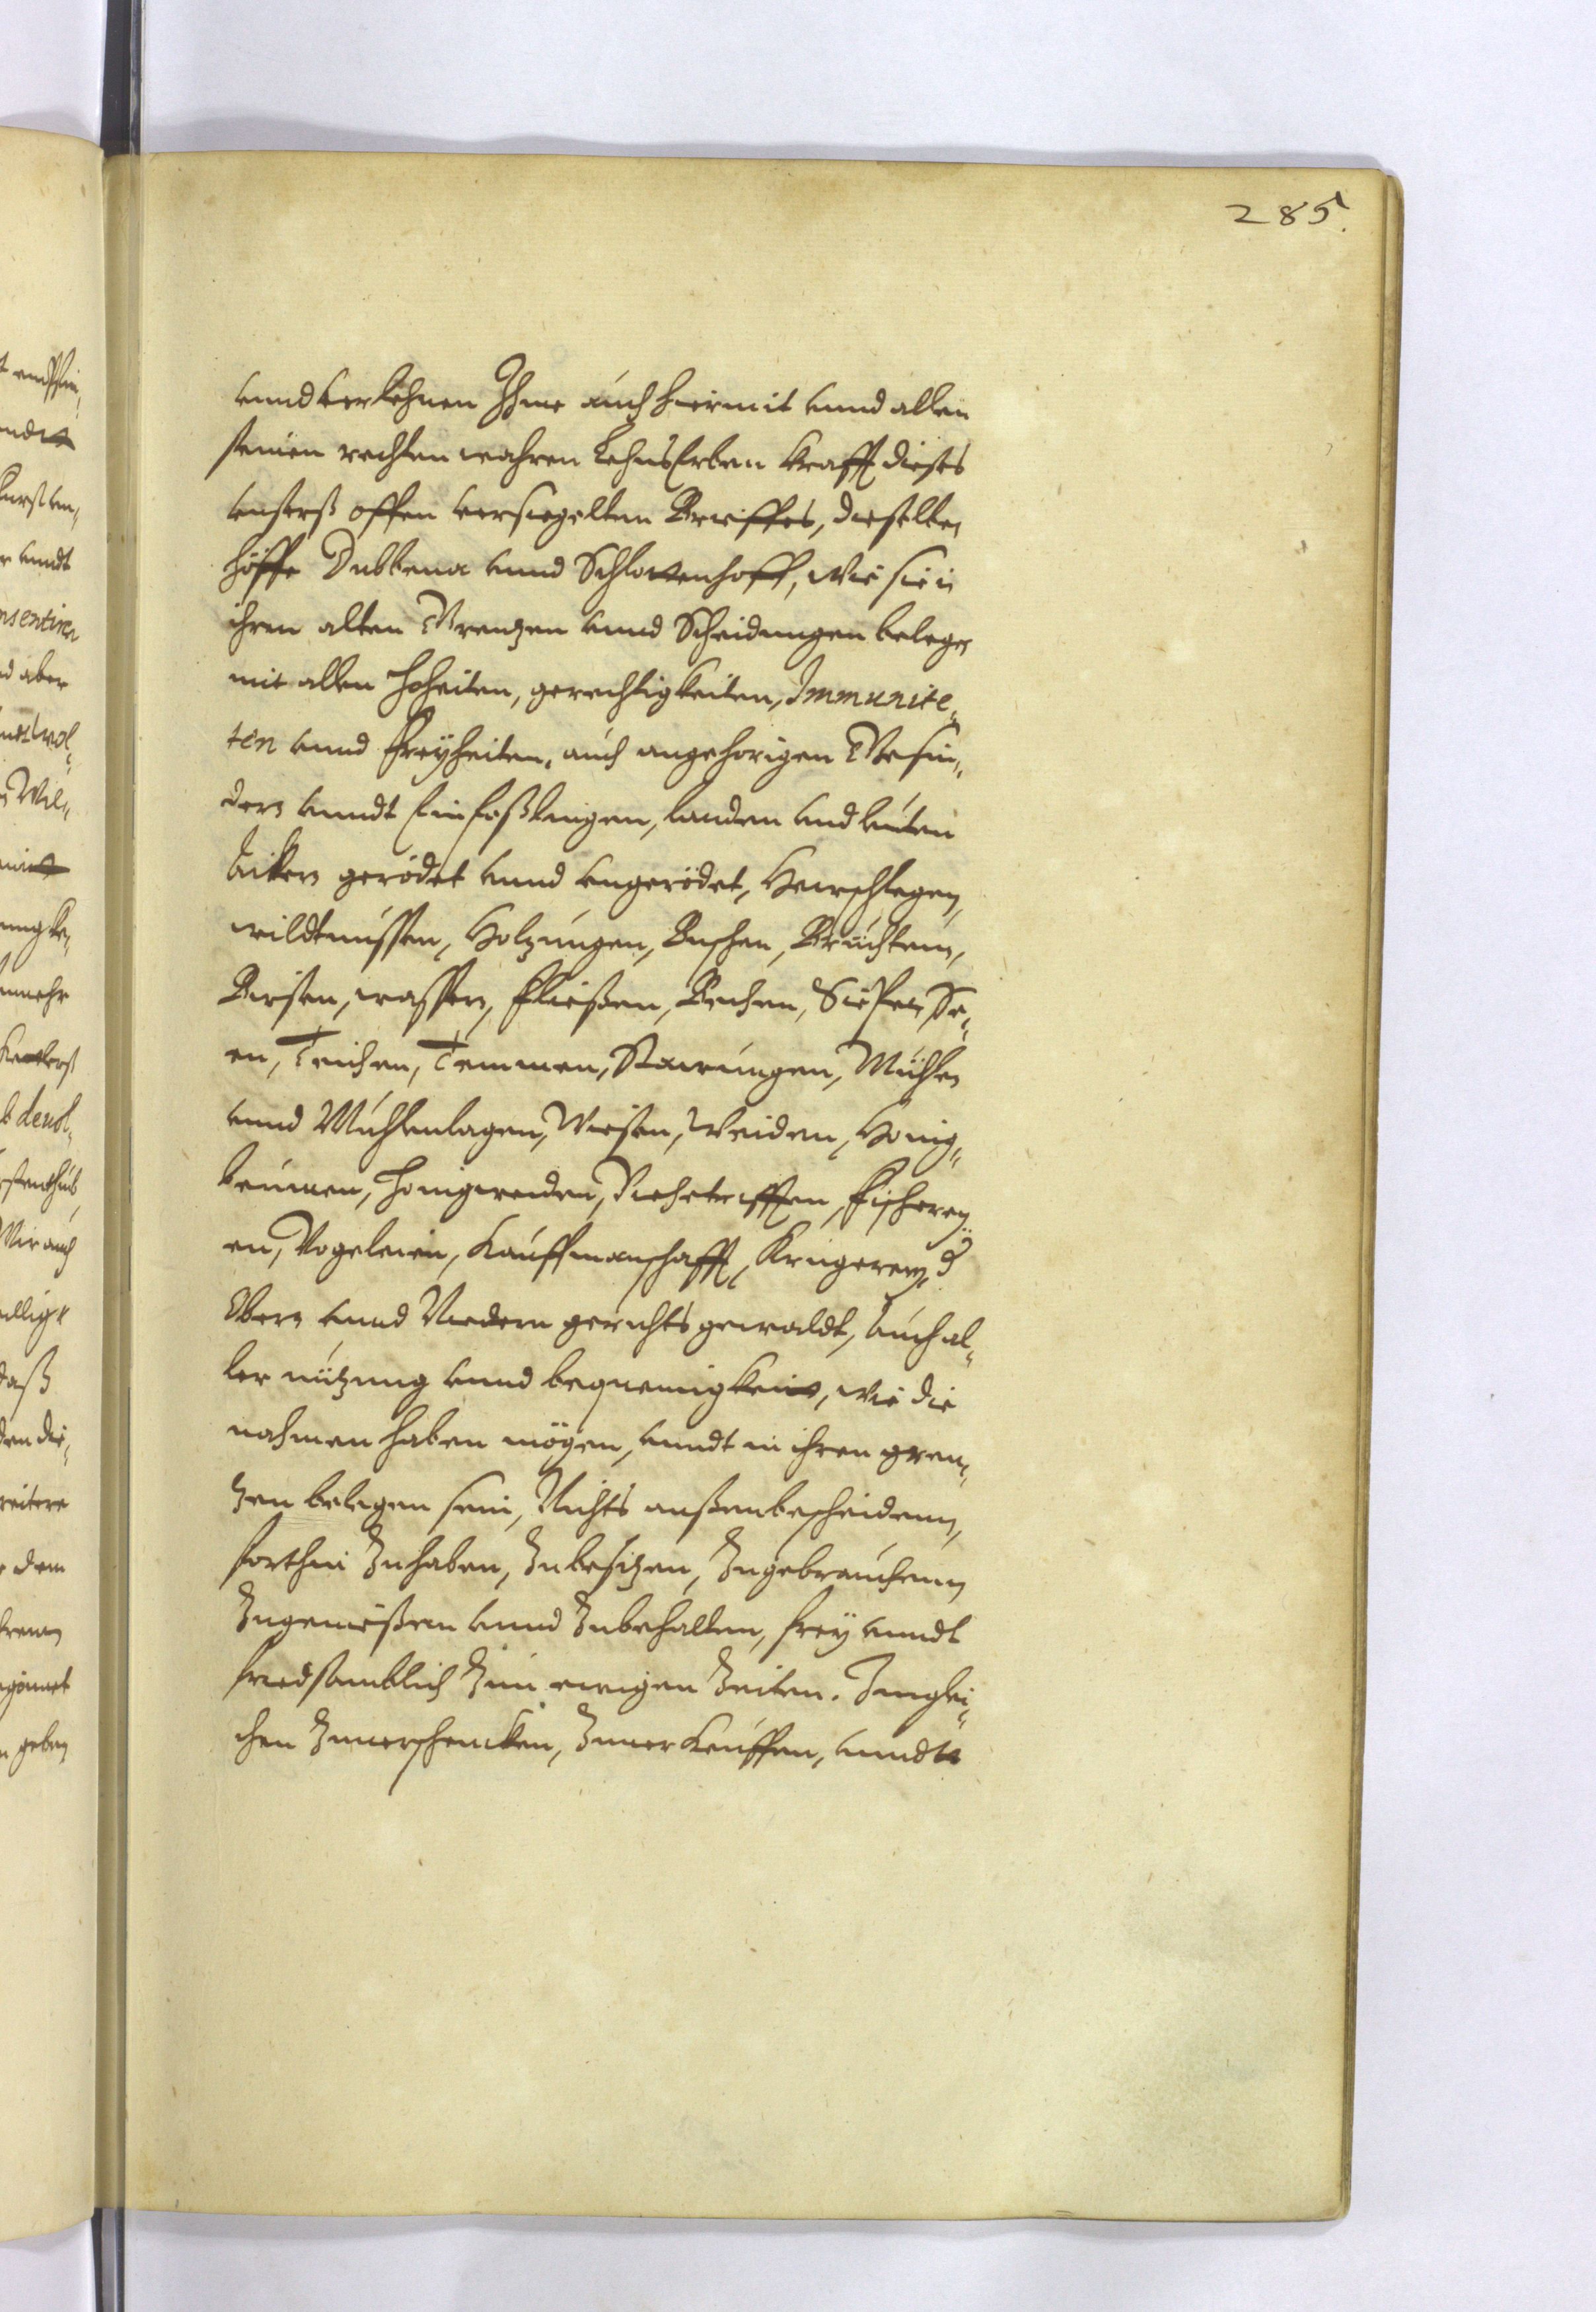 285.
unnd verlehnen Ihme auch hiermit unnd allen
seinen rechten wahren LehnsErben Krafft dieses
unsers offen versiegelten Brieffes, dieselben
höffe Dubbena unnd Schlottenhoff, wie sie in
ihren alten Grenzen unnd Scheidungen belegen
mit allen Hoheiten, gerechtigkeiten, Immunite„
ten unnd freyheiten, auch angehorigen Gesin„
dern unndt Einfoßlingen, landen und leuten
Äcker gerödet unnd ungerödet, Hewschlegen,
wildtnussen, Holzungen, Buschen, Brüchern,
Birsen, wassern, fliessen, Bechen, Siepen, Se„
en, Teichen, Temmen, Stawungen, Mühlen
unnd Mühlenlagen, Wiesen, Weiden, Honig„
beumen, Honigweiden, Viehetrifften, fischerey„
en, Vogeleien, Kauffmanschafft, Krugereyen,
Obern unnd Niedern gerichtsgewaldt, Auch al„
ler nützung unnd bequemigkeit, wie die
nahmen haben mögen, unndt in ihren gren„
zen belegen sein, Nichts außenbescheiden,
forthin Zuhaben, Zubesizen, Zugebrauchenn
Zugeniessen unnd Zubehalten, frey unndt
friedsamblich Zun ewigen Zeiten. Imglei„
chen Zuverschencken, Zuverkeuffen, unndt